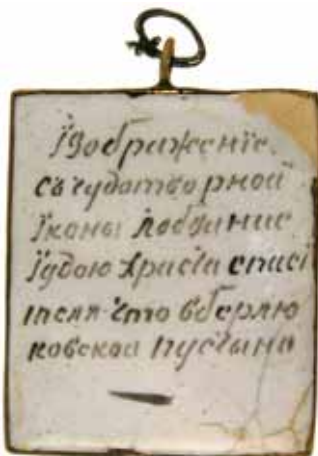 Їзображенїе.
съ чудатворной
Їконы лобзание
Їудою Христа спасї
теля что вберлю
ковской пустыни